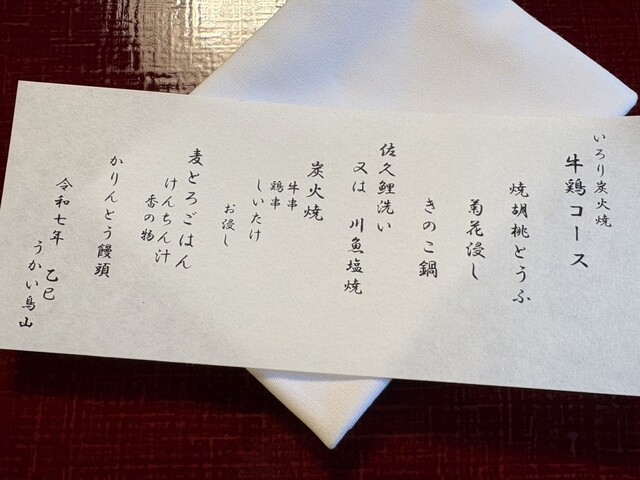 いろり炭火焼
牛鶏コース
焼胡桃とうふ
菊花浸し
きのこ鍋
佐久鯉洗い
又は 川魚塩焼
炭火焼
牛串
鶏串
しいたけ
お浸し
麦とろごはん
けんちん汁
香の物
かりんとう饅頭
令和七年 乙巳
うかい鳥山